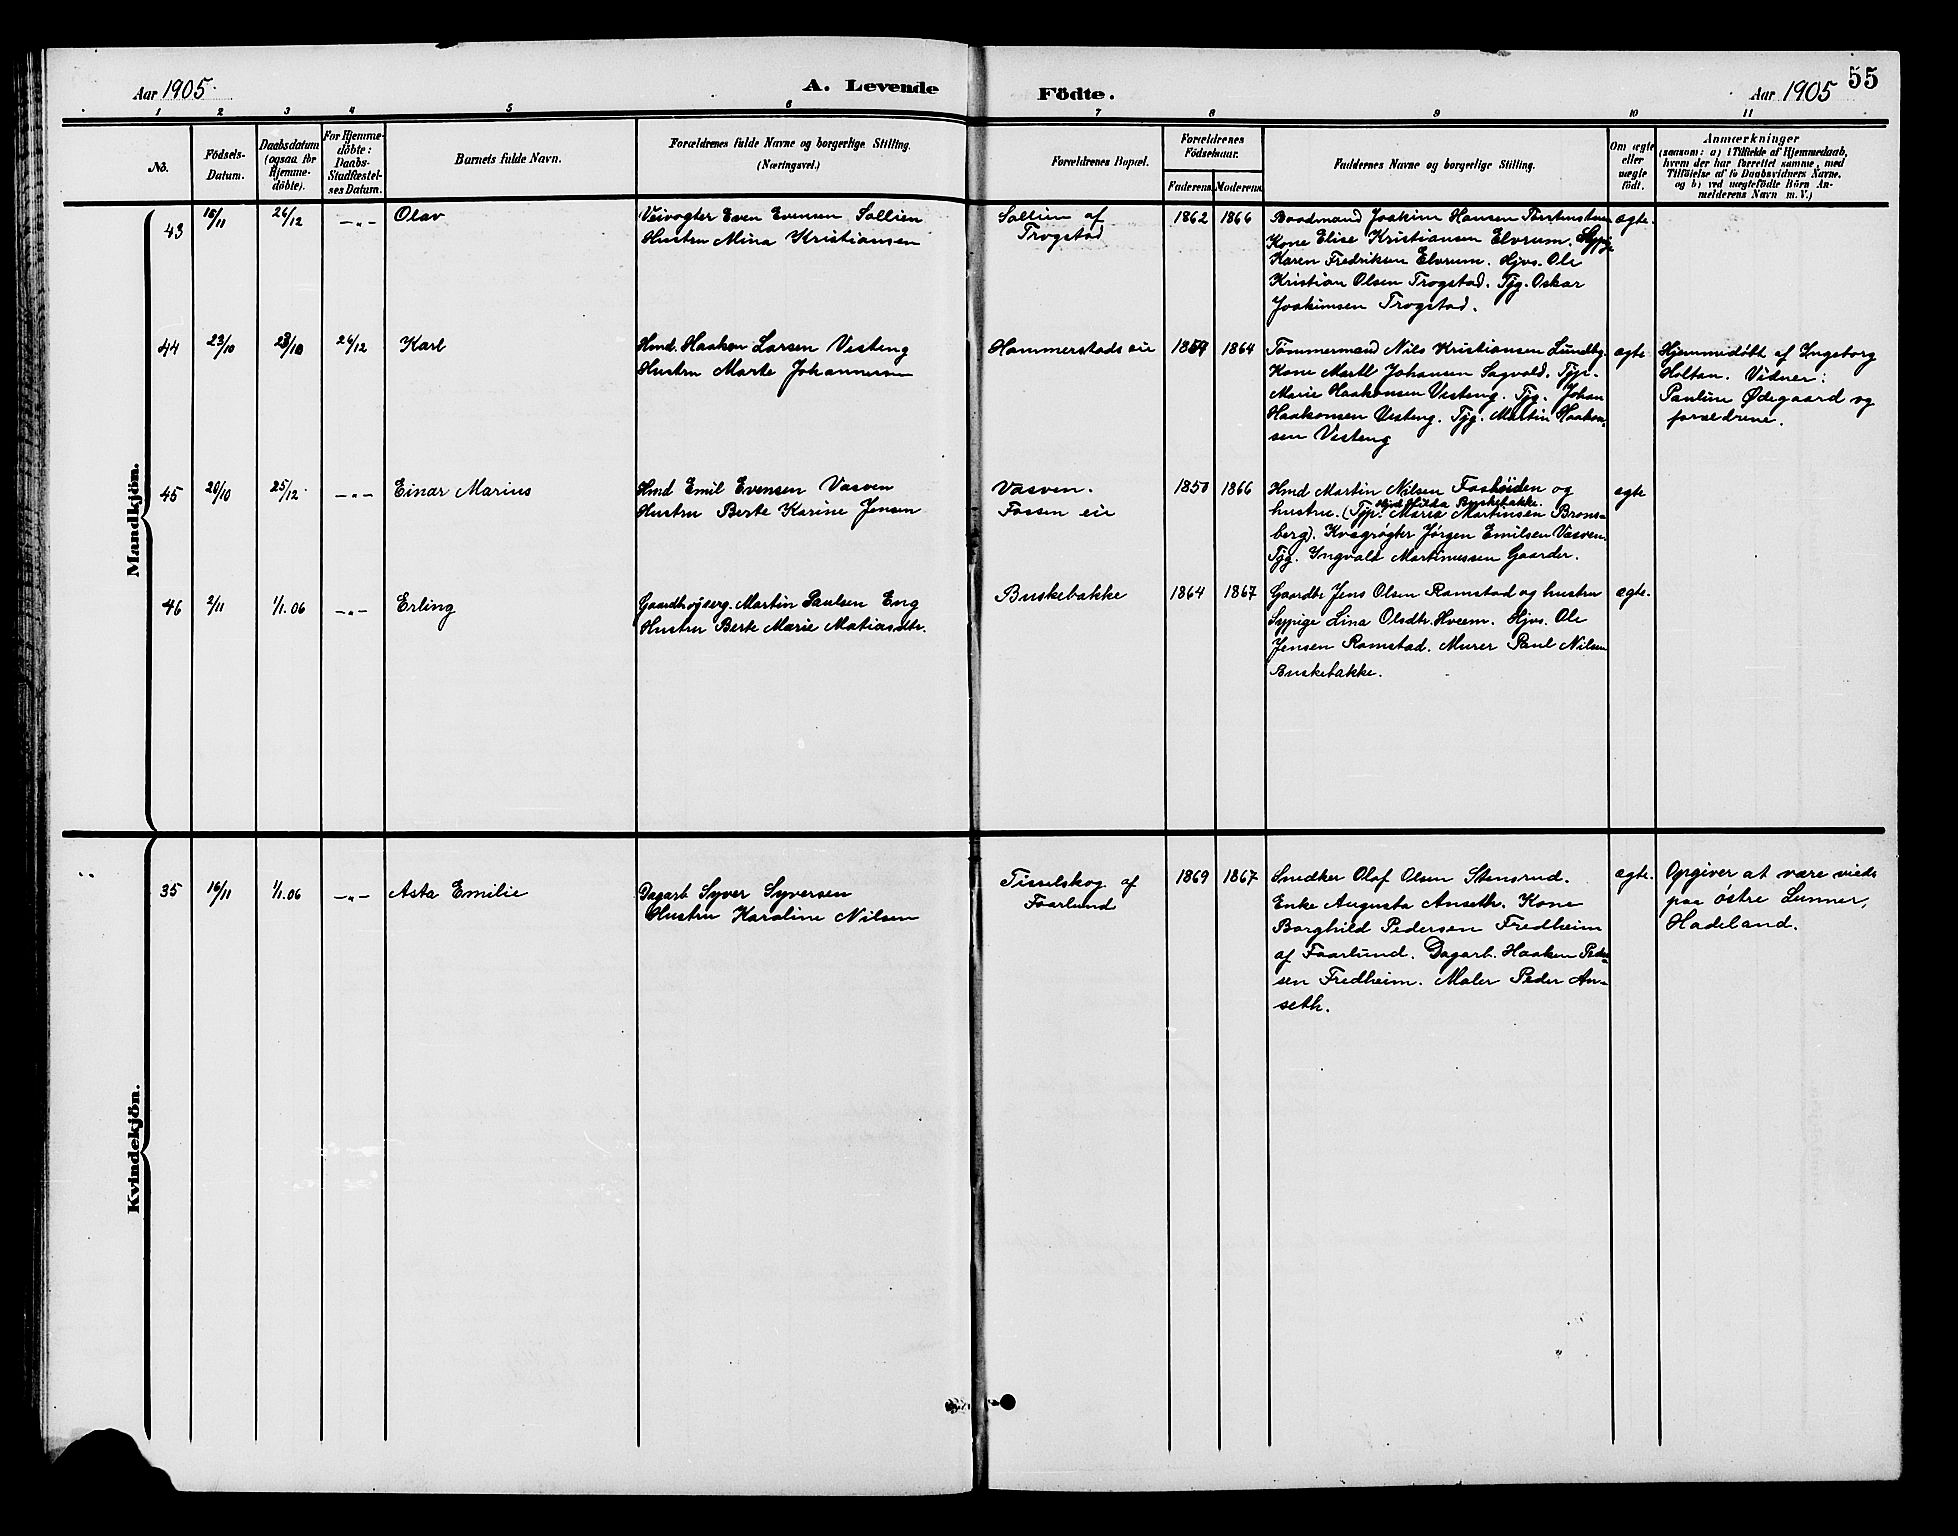 Aar 1905. A. Levende Födte. Aar 1905 55
1 2 3 4 5 6 7 8 9 10 11
No.
Födsels-
Datum.
Daabsdatum
(ogsaa for
Hjemme-
döbte).
For Hjemme-
döbte:
Daabs-
Stadfæstel-
ses Datum.
Barnets fulde Navn.
Forældrenes fulde Navne og borgerlige Stilling.
(Næringsvei.)
Forældrenes Bopæl.
Forældrenes
Födselsaar.
Faderens. Moderens.
Faddernes Navne og borgerlige Stilling.
Om ægte
eller
uægte
födt.
Anmærkninger
(saasom: a) i Tilfælde af Hjemmedaab,
hvem der har forrettet samme, med
Tilföielse af to Daabsvidners Navne,
og b) ved uægtefödte Börn An-
melderens Navn m. V.)
Mandkjön.
43 15/11 26/12 —„— Olav
Veivogter Even Evensen Sollien
Hustru Mina Kristiansen
Sollien af
Trogstad
1862 1866
Baadmand Joakim Hansen
Kone Elise Kristiansen Elvrum. Sypige
Karen Fredriksen Elvrum. Hjvs. Ole
Kristian Olsen Trogstad. Tjg. Oskar
Joakimsen Trogstad.
ægte.
44 23/10 23/10 26/12 Karl
Hmd. Haakon Larsen Vesteng
Hustru Marte Johannesen
Hammerstads eie
1859 1864
Tømmermand Nils Kristiansen Lundby.
Kone Martl Johansen Sagvold. Tjp.
Marie Haakonsen Vesteng. Tjg. Johan
Haakonsen Vesteng. Tjg. Martin Haakon-
sen Vesteng
ægte
Hjemmedøbt af Ingeborg
Holtan. Vidner:
Pauline Ødegaard og
forældrene.
45 20/10 25/12 —„— Einar Marius
Hmd Emil Evensen Vasven
Hustru Berte Karine Jensen
Vasven.
Fossen eie
1850 1866
Hmd Martin Nilsen Foshøiden og
hustru. (Tjp. Maria Martinsen Brons-
Hilda Buskebakke
berg). Kvægrøgter Jørgen Emilsen Vasven.
Tjg. Ingvald Martinussen Gaarder.
ægte
46 2/11 1/1.06 —„— Erling
Martin Paulsen Eng
Hustru Berte Marie Matiasdtr.
Buskebakke
1864 1867
Gaardbr Jens Olsen Ramstad og hustru
Sypige Lina Olsdtr. Hveem. Hjvs. Ole
Jensen Ramstad. Murer Paul Nilsen
Buskebakke.
ægte.
Kvindekjön.
35 16/11 1/1.06 —„— Asta Emilie
Dagarb Syver Syversen
Hustru Karoline Nilsen
Tisselskog af
Faarlund
1869 1867
Snedker Olaf Olsen Stensrud.
Enke Augusta Anseth. Kone
Borghild Pedersen Fredheim
af Faarlund. Dagarb. Haaken Peder-
sen Fredheim. Maler Peder An-
seth.
ægte.
Opgiver at være viede
paa østre Lunner,
Hadeland.